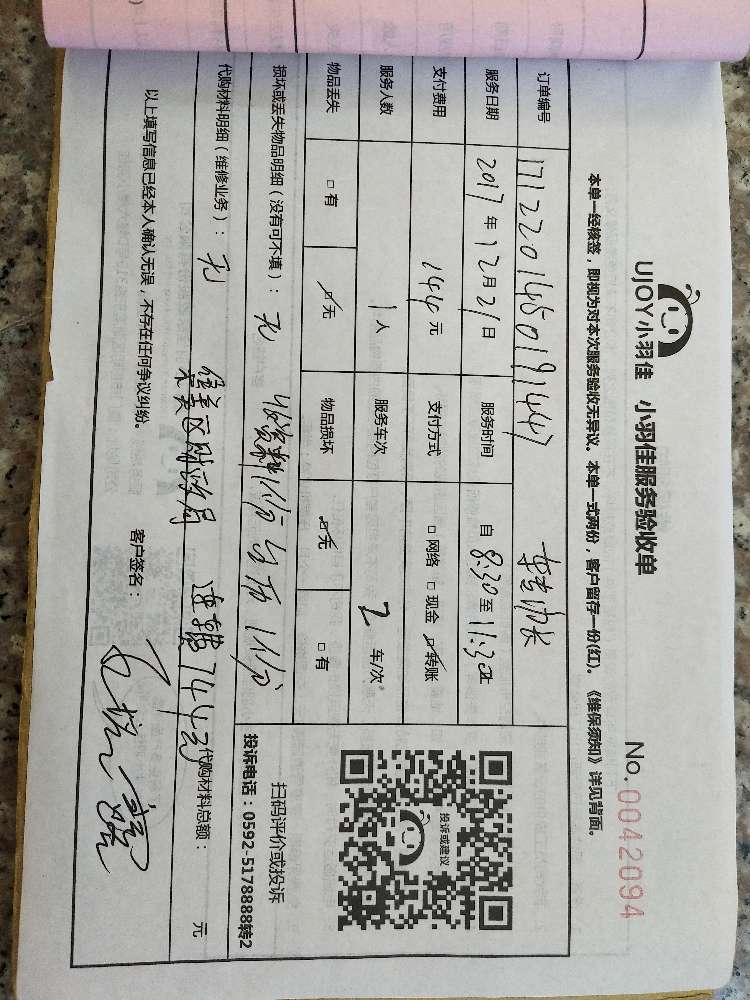 UJOY小羽佳 小羽佳服务验收单
No. 0042094
本单一经核签，即视为对本次服务验收无异议。本单一式两份，客户留存一份(红)。《维保须知》详见背面。
订单编号 1712201450191447
服务日期 2017年12月21日 服务时间 自8:30至11:30止
支付费用 144元 支付方式 □网络 □现金 ☑转账
服务人数 1人 服务车次 2车/次
物品丢失 □有 ☑无 物品损坏 ☑无 □有
损坏或丢失物品明细（没有可不填）： 无
代购材料明细（维修业务）： 无
代购材料总额： 元
以上填写信息已经本人确认无误，不存在任何争议纠纷。
客户签名：
投诉或建议
扫码评价或投诉
投诉电话：0592-5178888转2